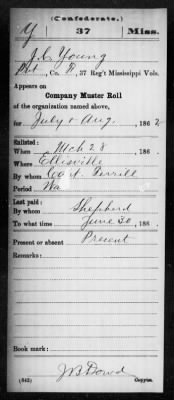 (Confederate.)
Y 37 Miss.
J. C. Young
Pvt, Co. , 37 Reg't Mississippi Vols.
Appears on
Company Muster Roll
of the organization named above,
for July & Aug, 1862
Enlisted:
When Mch 28, 186
Where Ellisville
By whom Capt. Terrill
Period War
Last paid:
By whom Shepherd
To what time June 30, 186
Present or absent Present
Remarks:
Book mark:
J B Dowd
(642) Copyist.